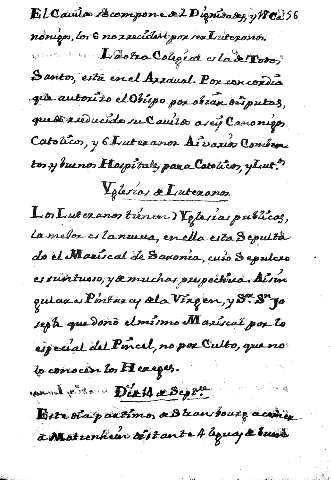 El Cavildo se compone de 2 Dignidades, y 18 Ca- 56
nonigos, los 6 no residen por ser Luteranos.
La otra Colegial es la de Todos
Santos, está en el Arraual. Por concordia
que autorizo el Obispo por obiar disputas,
quedó reducido su Cavildo a seis Canonigos
Catolicos, y 6 Luteranos Ai varios Comben-
tos, y buenos Hospitales, para Catolicos, y Lut.ˢ
Yglesias de Luteranos
Los Luteranos tienen 7 Yglesias publicas,
la mejor es la nueva, en ella esta Sepulta
do el Mariscal de Saxonia, cuio Sepulcro
es suntuoso, y de mucha perspectiva. Ai sin
gulares Pinturas de la Virgen, y Sⁿ. Sⁿ. Jo
seph que donó el mismo Mariscal por lo
especial del Pincel, no por Culto, que no
lo conocen los Hereges.
Dia 14 de Sepᵗʳᵉ
Este dia partimos de Stransbourg a comer
a Matzenheim distante 4 leguas de buen